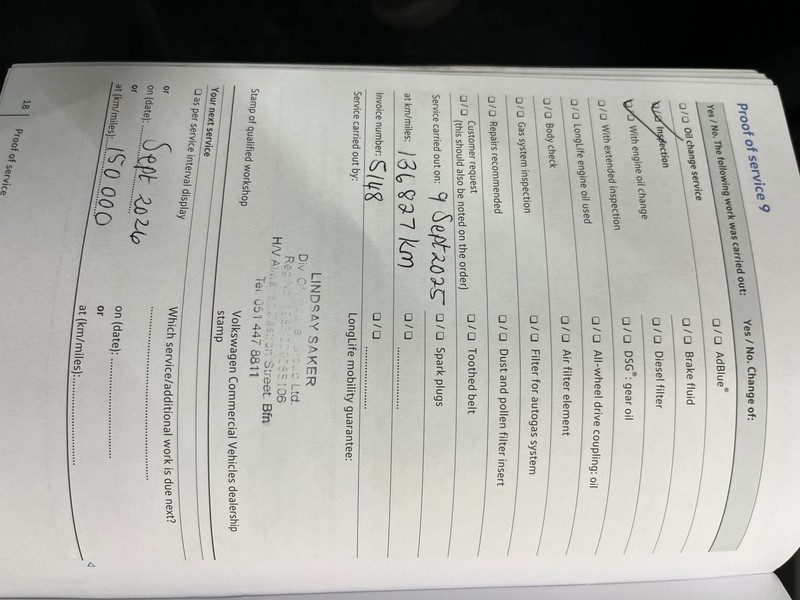 Proof of service 9
Yes / No. The following work was carried out:
☐ / ☐ Oil change service
☑ / ☐ Inspection
☑ / ☐ With engine oil change
☐ / ☐ With extended inspection
☐ / ☐ LongLife engine oil used
☐ / ☐ Body check
☐ / ☐ Gas system inspection
☐ / ☐ Repairs recommended
☐ / ☐ Customer request
(this should also be noted on the order)
Service carried out on: 9 Sept 2025
at km/miles: 136 827 km
Invoice number: 5148
Service carried out by:
Yes / No. Change of:
☐ / ☐ AdBlue®
☐ / ☐ Brake fluid
☐ / ☐ Diesel filter
☐ / ☐ DSG®: gear oil
☐ / ☐ All-wheel drive coupling: oil
☐ / ☐ Air filter element
☐ / ☐ Filter for autogas system
☐ / ☐ Dust and pollen filter insert
☐ / ☐ Toothed belt
☐ / ☐ Spark plugs
☐ / ☐ ....................
☐ / ☐ ....................
LongLife mobility guarantee:
LINDSAY SAKER
Div Of Ltd.
Street Bfn
Tel 051 447 8811
Stamp of qualified workshop
Volkswagen Commercial Vehicles dealership
stamp
Your next service
☐ as per service interval display
or
on (date): Sept 2026
or
at (km/miles): 150 000
Which service/additional work is due next?
....................
on (date): ....................
or
at (km/miles): ....................
18 Proof of service